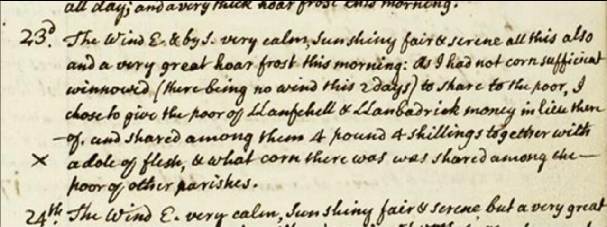 all day; and a very thick hoar frost this morning.
23d. The Wind E. & by S. very calm, Sun shiny fair & serene all this also
and a very great hoar frost this morning: As I had not corn sufficient
winnowed (there being no wind this 2 days) to share to the poor, I
chose to give the poor of Llanfchell & Llanbadrick money in lieu there
of. and shared among them 4 pound 4 shillings together with
× a dole of flesh, & what corn there was was shared among the —
poor of other parishes.
24th. The Wind E. very calm, Sun shiny fair & serene, but a very great